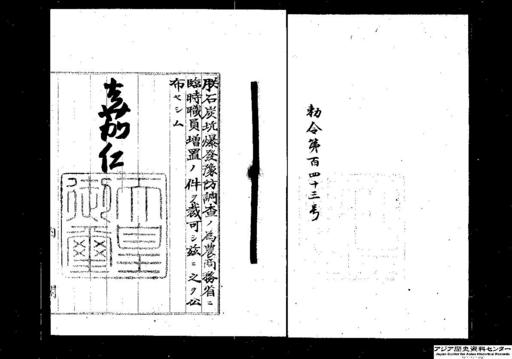 勅令第百四十三号
朕石炭坑爆発予防調査ノ為農商務省ニ
臨時職員増置ノ件ヲ裁可シ玆ニ之ヲ公
布セシム
嘉仁
天皇御璽
内閣
アジア歴史資料センター
Japan Center for Asian Historical Records